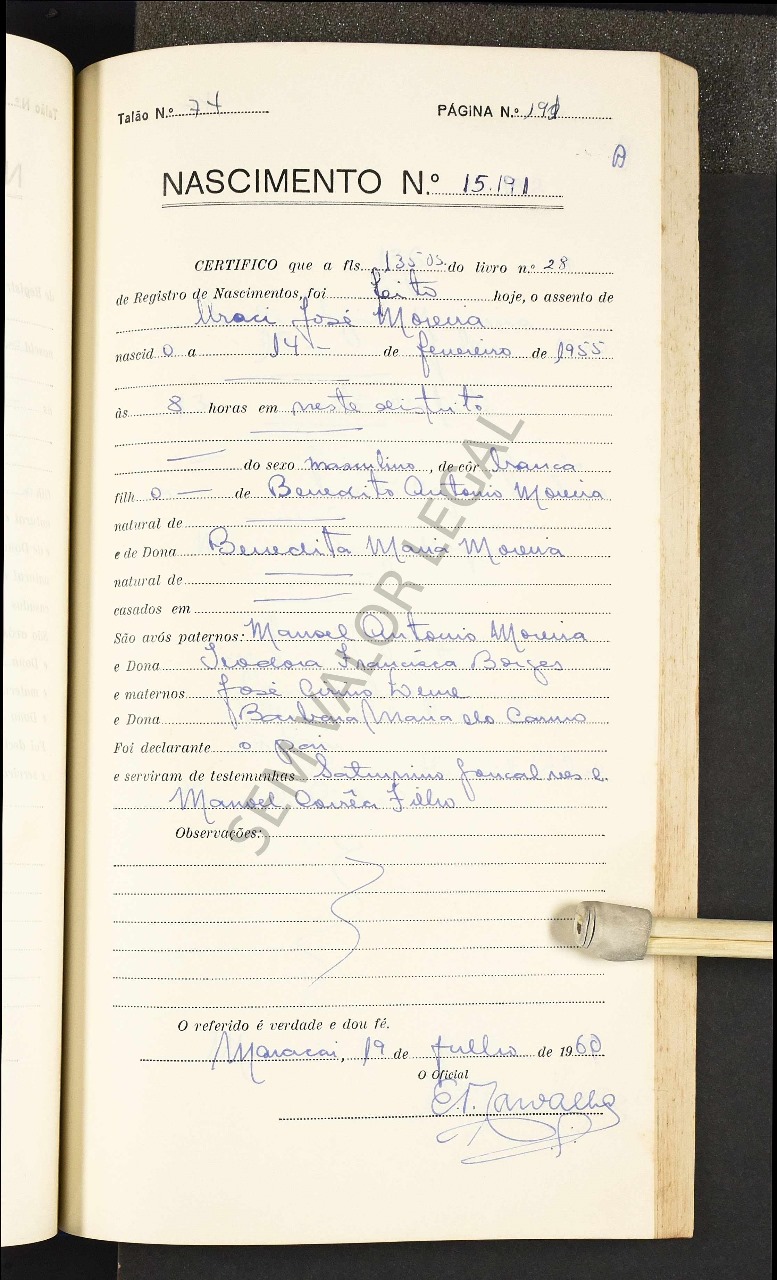 Talão N.º 74 PÁGINA N.º 191
NASCIMENTO N.º 15.191
CERTIFICO que a fls. 135 vs. do livro n.º 28
de Registro de Nascimentos, foi feito hoje, o assento de
José Moreira
nascid o a 14 - de fevereiro de 1955
às 8 horas em neste distrito
do sexo masculino, de côr branca
filh o de Benedito Antonio Moreira
natural de
e de Dona Benedita Maria Moreira
natural de
casados em
São avós paternos: Manoel Antonio Moreira
e Dona Teodora Francisca Borges
e maternos José Cirino
e Dona Barbara Maria do Carmo
Foi declarante o pai
e serviram de testemunhas Saturnino Goncalves e
Manoel Corrêa Filho
Observações:
O referido é verdade e dou fé.
Maracai, 19 de Julho de 1960
O Oficial
Carvalho
SEM VALOR LEGAL